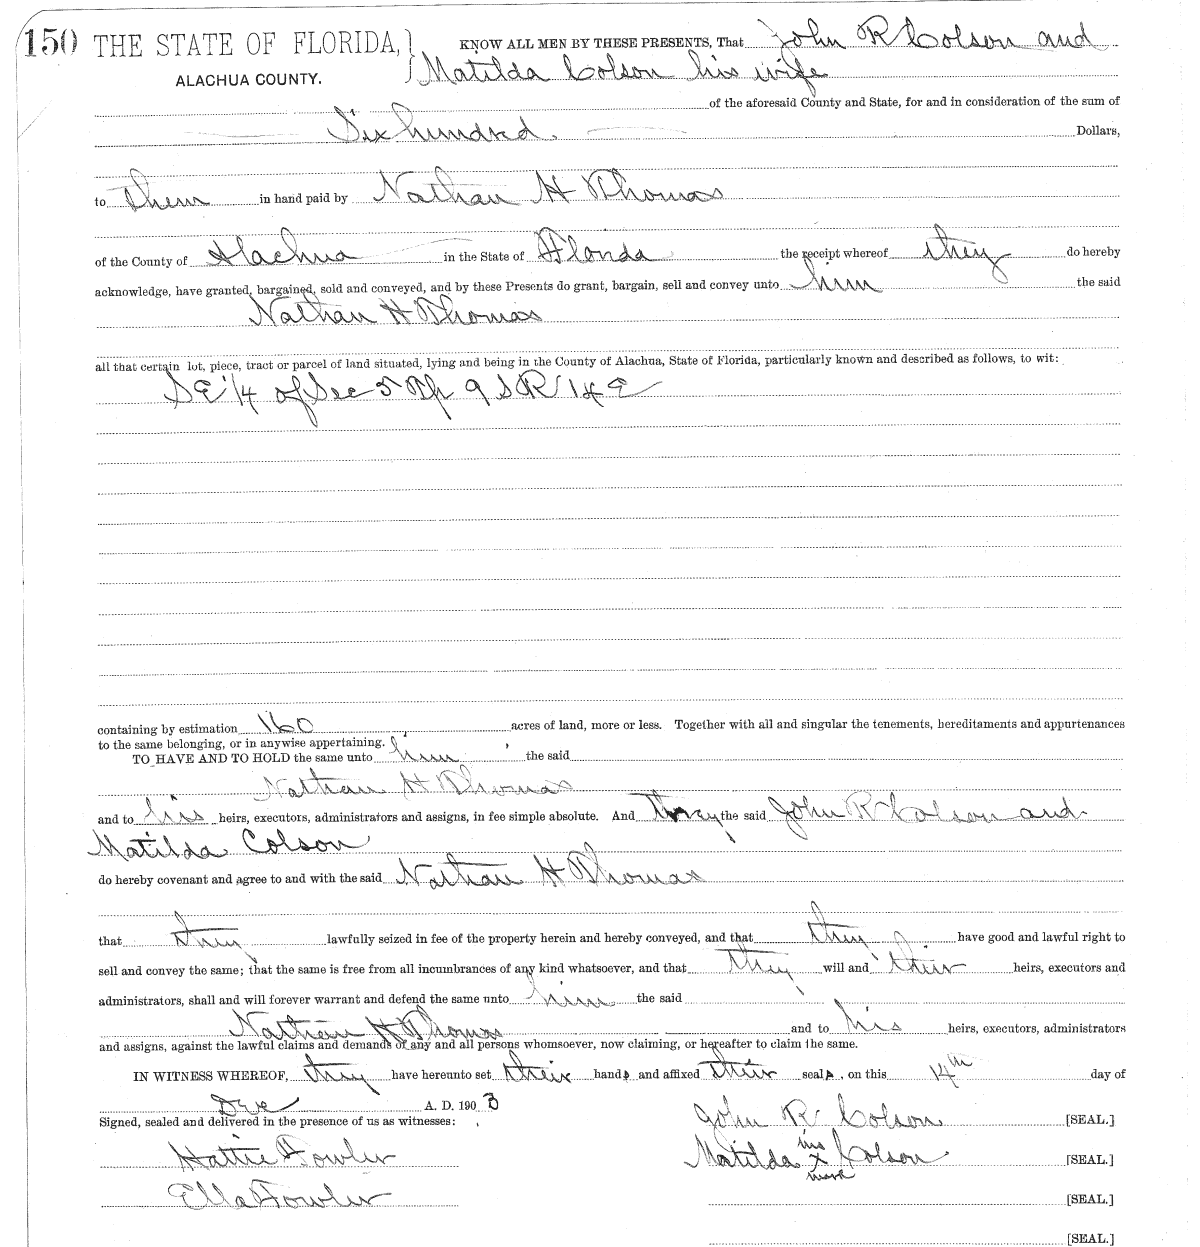 150 THE STATE OF FLORIDA, } KNOW ALL MEN BY THESE PRESENTS, That John R Colson and
ALACHUA COUNTY. Matilda Colson his wife
of the aforesaid County and State, for and in consideration of the sum of
Six hundred. Dollars,
to them in hand paid by Nathan H Thomas
of the County of Alachua in the State of Florida the receipt whereof they do hereby
acknowledge, have granted, bargained, sold and conveyed, and by these Presents do grant, bargain, sell and convey unto him the said
Nathan H Thomas
all that certain lot, piece, tract or parcel of land situated, lying and being in the County of Alachua, State of Florida, particularly known and described as follows, to wit:
SE 1/4 of Sec 5 Tp 9 S R 14 E
containing by estimation 160 acres of land, more or less. Together with all and singular the tenements, hereditaments and appurtenances
to the same belonging, or in anywise appertaining.
TO HAVE AND TO HOLD the same unto him the said
Nathan H Thomas
and to his heirs, executors, administrators and assigns, in fee simple absolute. And they the said John R Colson and
Matilda Colson
do hereby covenant and agree to and with the said Nathan H Thomas
that they lawfully seized in fee of the property herein and hereby conveyed, and that they have good and lawful right to
sell and convey the same; that the same is free from all incumbrances of any kind whatsoever, and that they will and their heirs, executors and
administrators, shall and will forever warrant and defend the same unto him the said
Nathan H Thomas and to his heirs, executors, administrators
and assigns, against the lawful claims and demands of any and all persons whomsoever, now claiming, or hereafter to claim the same.
IN WITNESS WHEREOF, they have hereunto set their hands and affixed their seals, on this 14th day of
Dec A. D. 1903
Signed, sealed and delivered in the presence of us as witnesses: John R Colson [SEAL.]
Hattie Fowler Matilda his x mark Colson [SEAL.]
Ella Fowler [SEAL.]
[SEAL.]